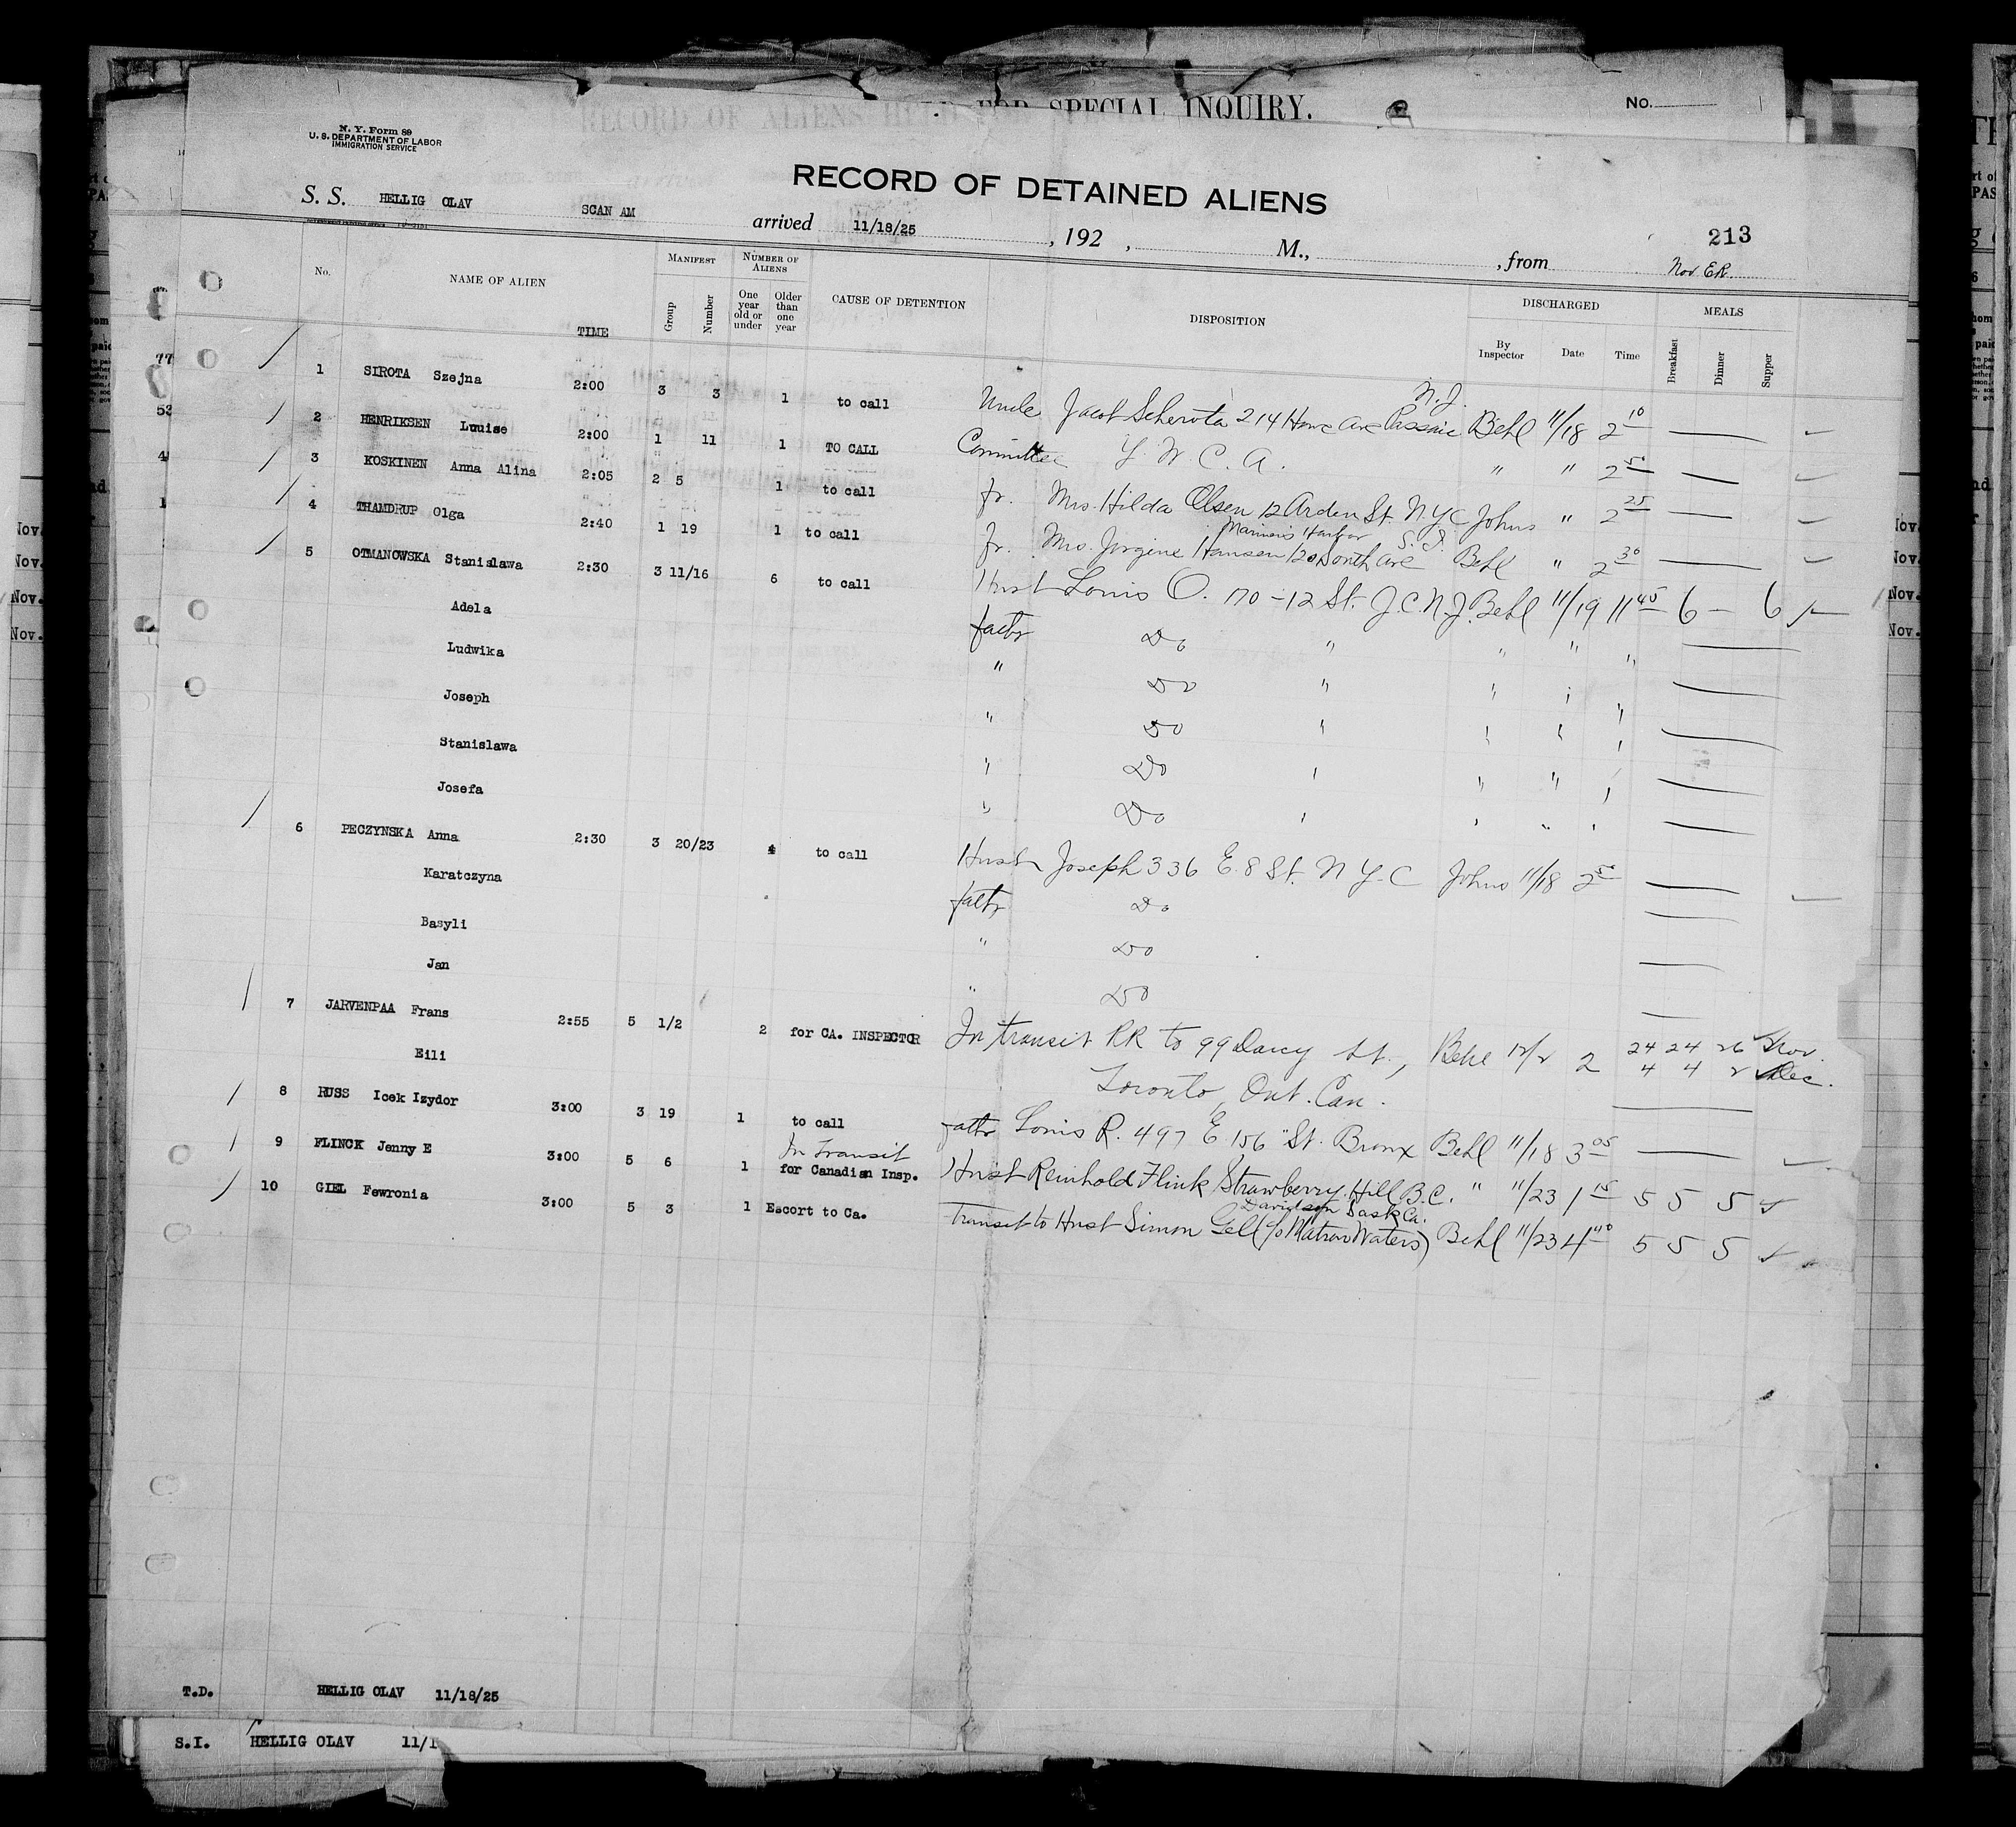 RECORD OF ALIENS HELD FOR SPECIAL INQUIRY.
No.
N. Y. Form 89
U. S. DEPARTMENT OF LABOR
IMMIGRATION SERVICE
RECORD OF DETAINED ALIENS
S. S. HELLIG OLAV SCAN AM arrived 11/18/25 , 192 , M., , from
213
Nov. E.R.
No. NAME OF ALIEN TIME MANIFEST Group Number NUMBER OF ALIENS One year old or under Older than one year CAUSE OF DETENTION DISPOSITION DISCHARGED By Inspector Date Time MEALS Breakfast Dinner Supper
1 SIROTA Szejna 2:00 3 3 1 to call Uncle Jacob Scherota 214 Howe Ave Passaic N.J. Behl 11/18 2 10
2 HENRIKSEN Louise 2:00 1 11 1 TO CALL Committee Y. W. C. A. " " 2 50
3 KOSKINEN Anna Alina 2:05 2 5 1 to call fr. Mrs. Hilda Olsen 12 Arden St. N.Y.C Johns " 2 25
4 THAMDRUP Olga 2:40 1 19 1 to call fr. Mrs. Jorgine Hansen 120 South Ave Mariners Harbor S. I. Behl " 2 30
5 OTMANOWSKA Stanislawa 2:30 3 11/16 6 to call Husb Louis O. 170-12 St. J.C. N.J. Behl 11/19 11 45 6 — 6
Adela fathr Do " " " "
Ludwika " Do " " " "
Joseph " Do " " " "
Stanislawa " Do " " " "
Josefa " Do " " " "
6 PECZYNSKA Anna 2:30 3 20/23 4 to call Husb Joseph 336 E. 8 St. N.Y.C Johns 11/18 2 50
Karatczyna fathr Do
Basyli " Do
Jan " Do
7 JARVENPAA Frans 2:55 5 1/2 2 for CA. INSPECTOR In transit RR to 99 Darcy St., Behl 12/2 2 24 24 26 Nov.
Eili Toronto, Ont. Can. 4 4 2 Dec.
8 RUSS Icek Izydor 3:00 3 19 1 to call fathr Louis R. 497 E. 156 St. Bronx Behl 11/18 3 05
9 FLINCK Jenny E 3:00 5 6 1 In Transit for Canadian Insp. Husb Reinhold Flink Strawberry Hill B.C. " 11/23 1 15 5 5 5
10 GIEL Fewronia 3:00 5 3 1 Escort to Ca. Transit to Husb Simon Gell Davidson Sask Ca. (c/o Matron Waters) Behl 11/23 4 40 5 5 5
T.D. HELLIG OLAV 11/18/25
S.I. HELLIG OLAV 11/1